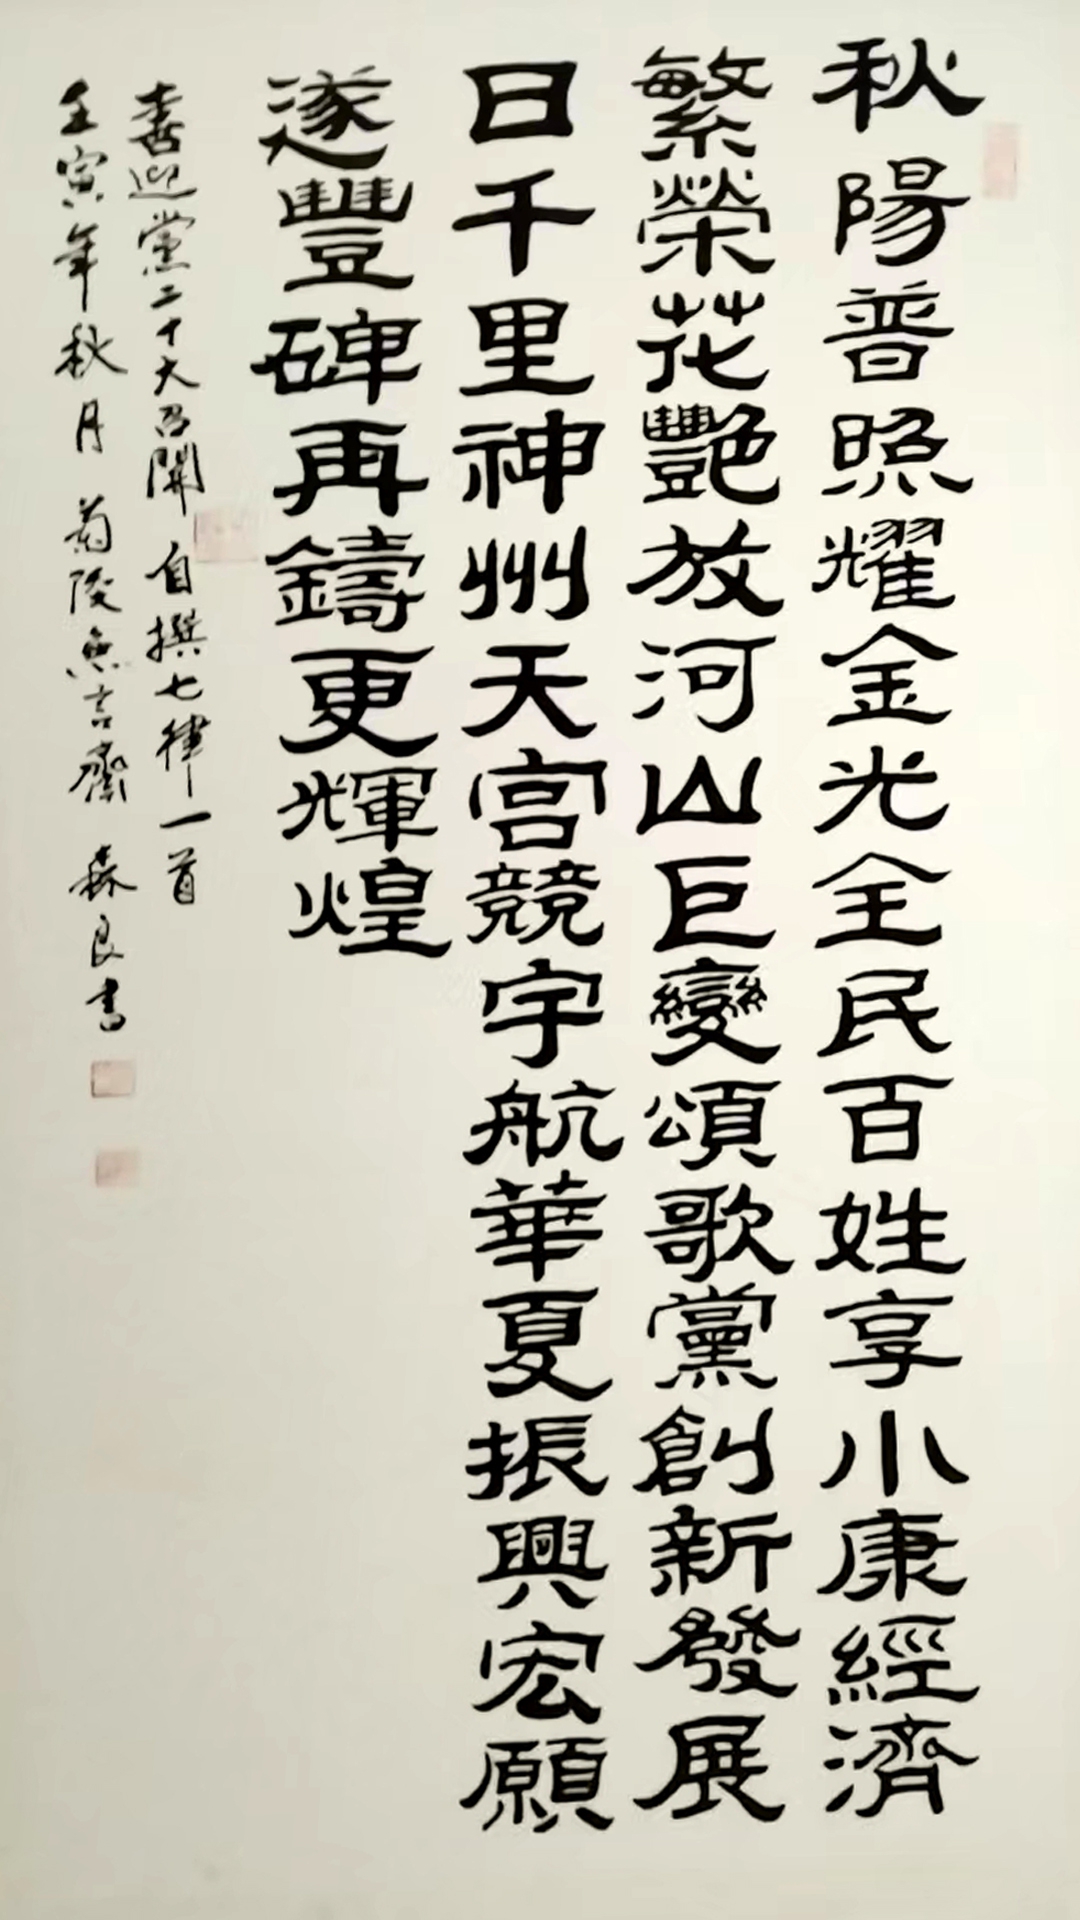 秋陽普照耀金光全民百姓享小康經濟
繁榮花艷放河山巨變頌歌黨創新發展
日千里神州天宮競宇航華夏振興宏願
遂豐碑再鑄更輝煌
喜迎黨二十大召開自撰七律一首
壬寅年秋月菊陵無言齋森良書